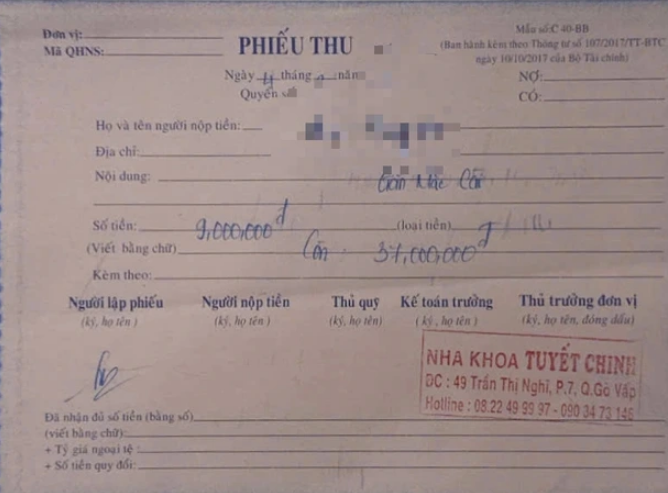 Đơn vị:
Mã QHNS:
PHIẾU THU
Mẫu số:C 40-BB
(Ban hành kèm theo Thông tư số 107/2017/TT-BTC
ngày 10/10/2017 của Bộ Tài chính)
Ngày tháng năm
Quyển số
NỢ:
CÓ:
Họ và tên người nộp tiền:
Địa chỉ:
Nội dung: Gắn Mắc Cài
Số tiền: 9,000,000đ (loại tiền)
(Viết bằng chữ) Còn 37,000,000đ
Kèm theo:
Người lập phiếu Người nộp tiền Thủ quỹ Kế toán trưởng Thủ trưởng đơn vị
(ký, họ tên ) (ký, họ tên ) (ký, họ tên) (ký , họ tên ) (ký, họ tên, đóng dấu)
NHA KHOA TUYẾT CHINH
ĐC : 49 Trần Thị Nghĩ, P.7, Q.Gò Vấp
Hotline : 08.22 49 99 97 - 090 34 73 146
Đã nhận đủ số tiền (bằng số)
(viết bằng chữ):
+ Tỷ giá ngoại tệ :
+ Số tiền quy đổi: